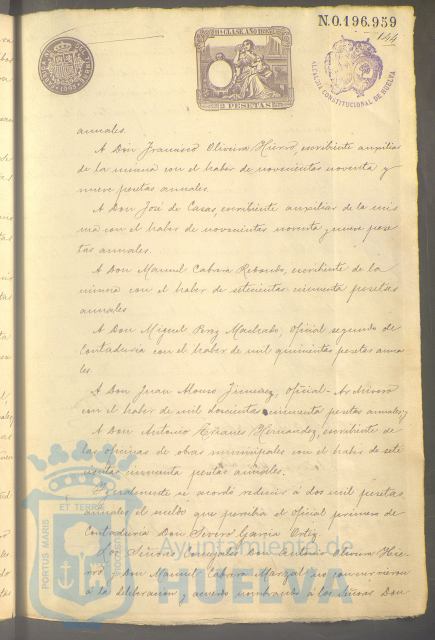 N.0.196.959
144
11ª CLASE AÑO 1895
2 PESETAS
ALCALDÍA CONSTITUCIONAL DE HUELVA
annales.
A Don Francisco Oliveira Hierro, escribiente auxiliar
de la misma con el haber de novecientas noventa y
nueve pesetas annales.
A Don José de Casas, escribiente auxiliar de la mis
ma con el haber de novecientas noventa y nueve pese
tas annales.
A Don Manuel Cabrera Rebondo, escribiente de la
misma con el haber de setecientas cincuenta pesetas
annales
A Don Miguel Machado, oficial segundo de
Contaduria con el haber de mil quinientas pesetas anua
les.
A Don Juan Alonso Jimenez, oficial-Archivero
con el haber de mil doscientas cincuenta pesetas annales; y
A Don Antonio Hernandez, escribiente de
las oficinas de obras municipales con el haber de sete
cientas cincuenta pesetas annales.
Igualmente se acordó reducir á dos mil pesetas
annales el sueldo que percibia el oficial primero de
Contaduria Don Severo Garcia Ortiz.
Los Señores Concejales Don Oliveira Hie-
rro y Don Manuel Cabrera no concurrieron
á la deliberacion y acuerdo nombrando á los Señores Don
PORTUS MARIS
ET TERRÆ
CUSTODIA
Ayuntamiento de
HUELVA